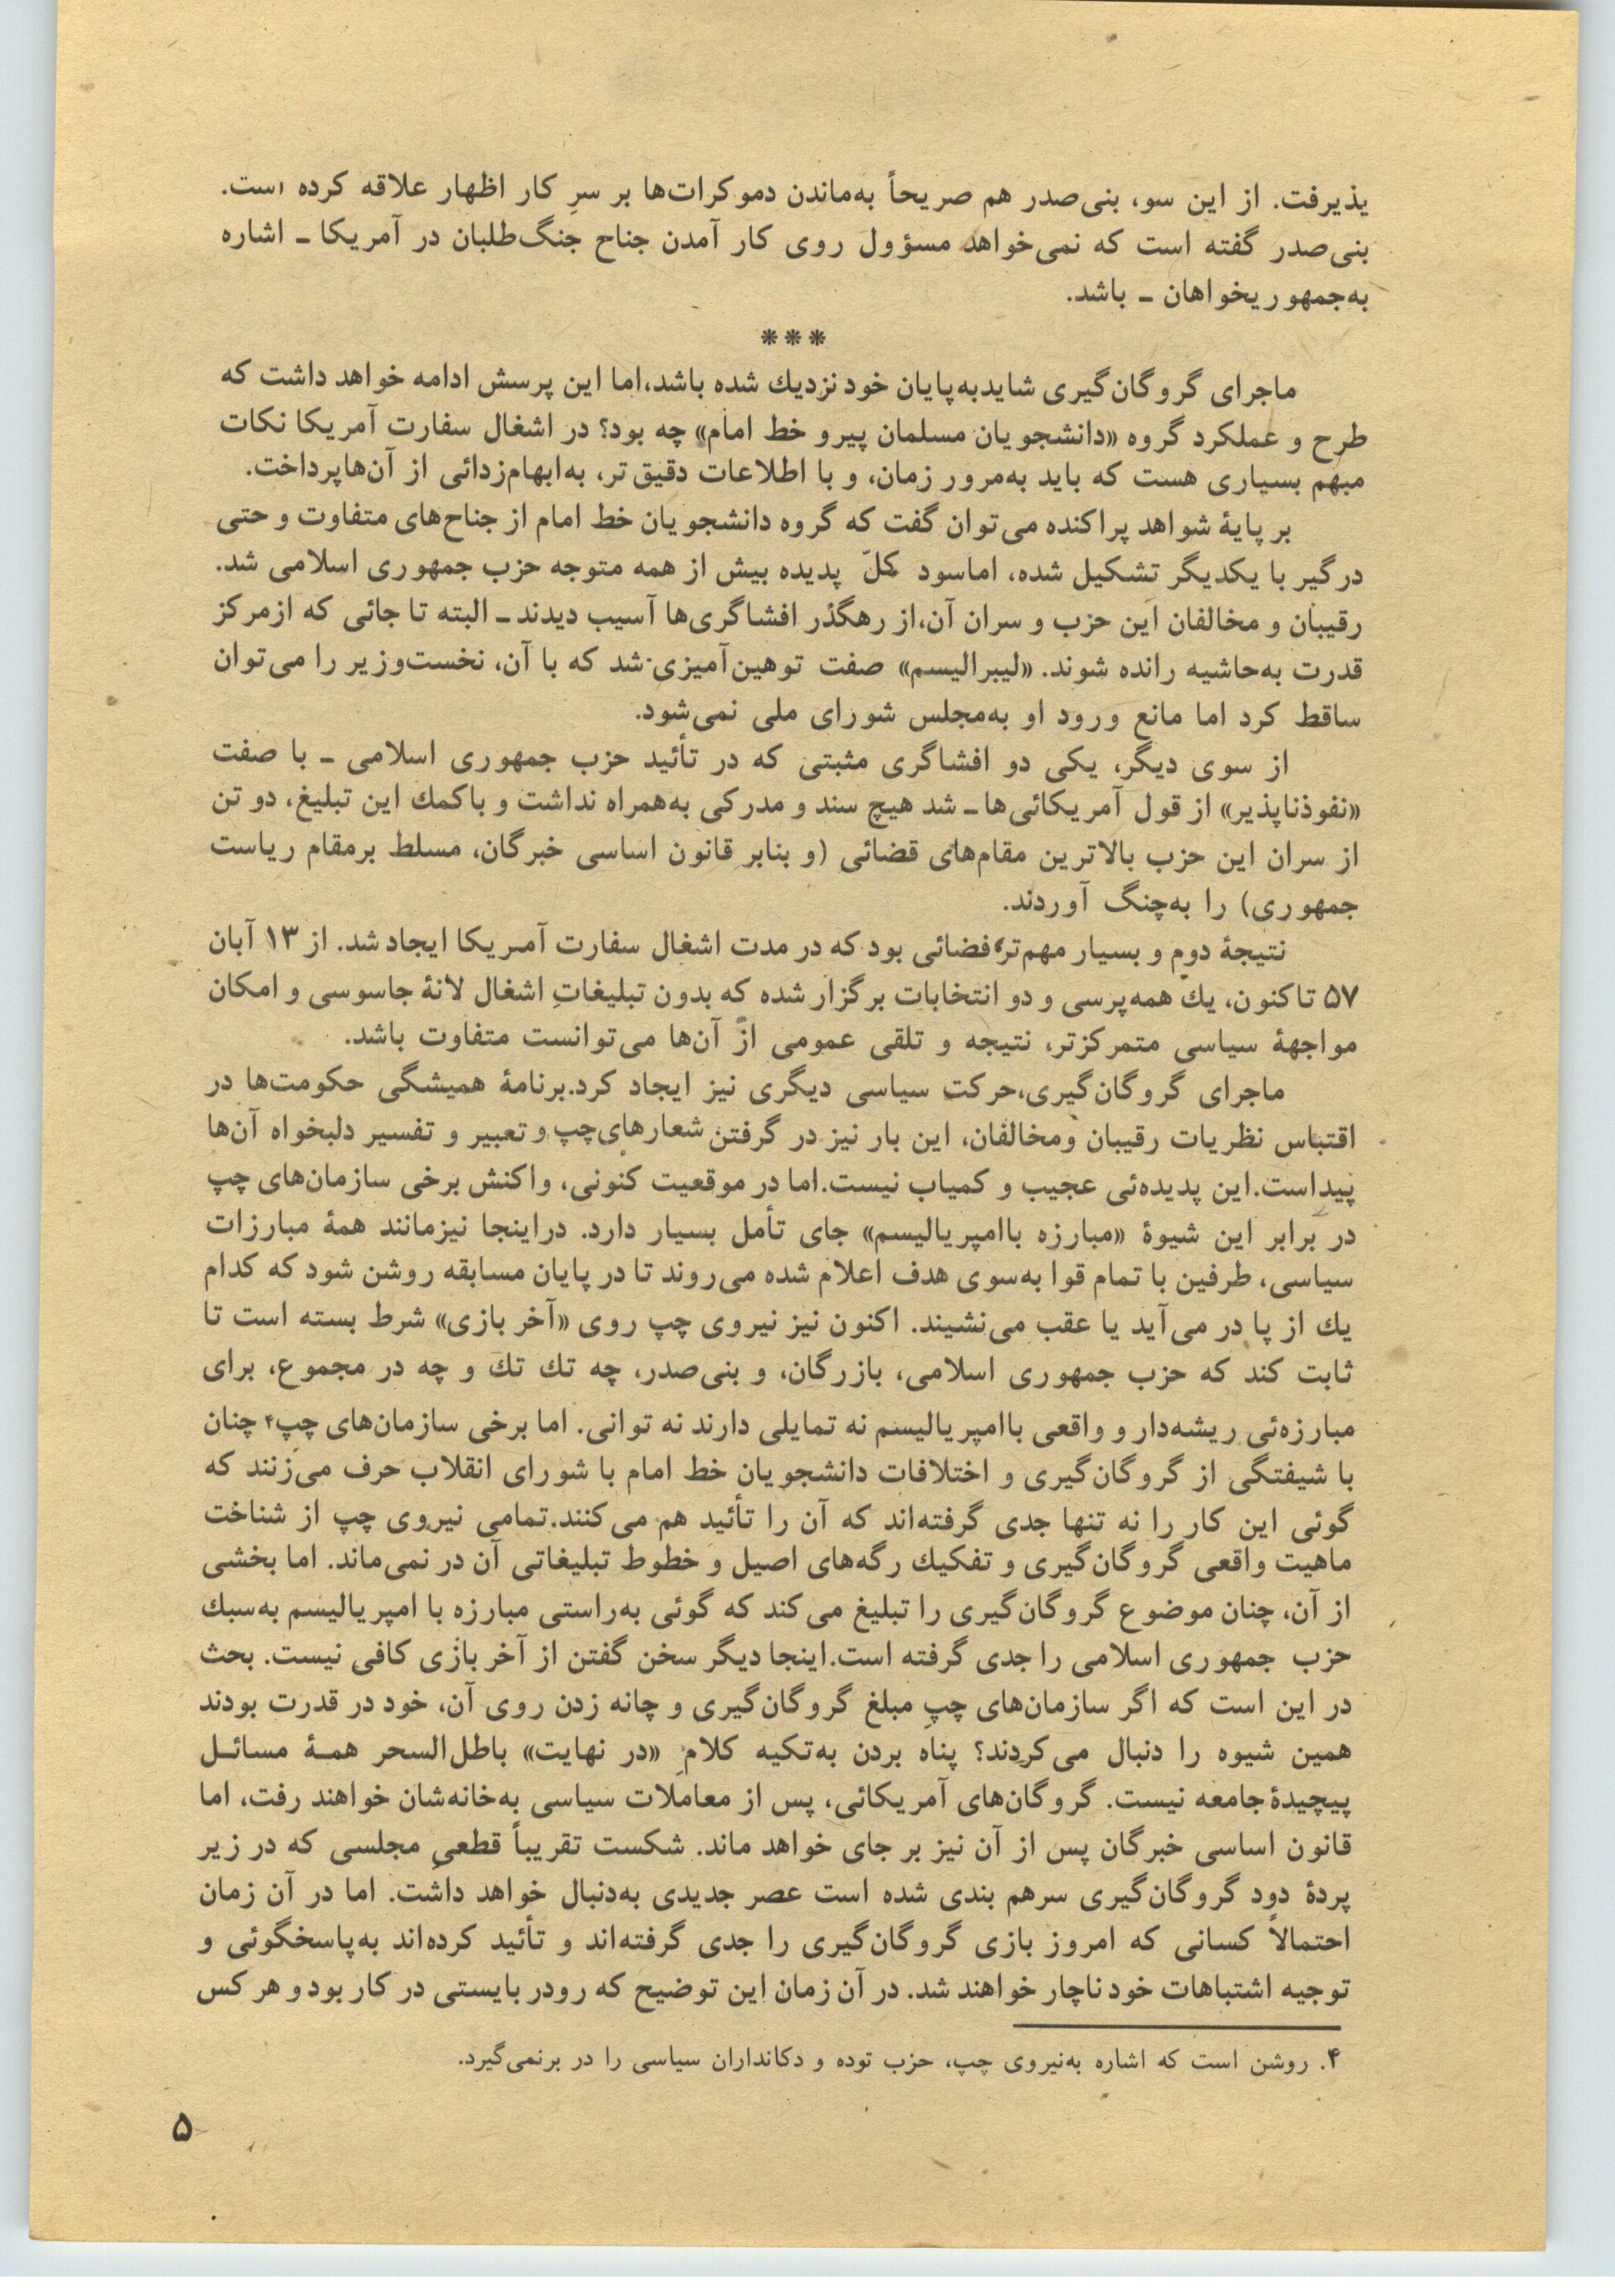 پذیرفت. از این سو، بنی‌صدر هم صریحاً به‌ماندن دموکرات‌ها بر سرِ کار اظهار علاقه کرده است.
بنی‌صدر گفته است که نمی‌خواهد مسؤول روی کار آمدن جناح جنگ‌طلبان در آمریکا ـ اشاره
به‌جمهوریخواهان ـ باشد.
***
ماجرای گروگان‌گیری شاید به‌پایان خود نزدیك شده باشد، اما این پرسش ادامه خواهد داشت که
طرح و عملکرد گروه «دانشجویان مسلمان پیرو خط امام» چه بود؟ در اشغال سفارت آمریکا نکات
مبهم بسیاری هست که باید به‌مرور زمان، و با اطلاعات دقیق‌تر، به‌ابهام‌زدائی از آن‌ها پرداخت.
بر پایهٔ شواهد پراکنده می‌توان گفت که گروه دانشجویان خط امام از جناح‌های متفاوت و حتی
درگیر با یکدیگر تشکیل شده، اما سود کلّ پدیده بیش از همه متوجه حزب جمهوری اسلامی شد.
رقیبان و مخالفان این حزب و سران آن، از رهگذر افشاگری‌ها آسیب دیدند ـ البته تا جائی که از مرکز
قدرت به‌حاشیه رانده شوند. «لیبرالیسم» صفت توهین‌آمیزی شد که با آن، نخست‌وزیر را می‌توان
ساقط کرد اما مانع ورود او به‌مجلس شورای ملی نمی‌شود.
از سوی دیگر، یکی دو افشاگری مثبتی که در تأئید حزب جمهوری اسلامی ـ با صفت
«نفوذناپذیر» از قول آمریکائی‌ها ـ شد هیچ سند و مدرکی به‌همراه نداشت و با کمك این تبلیغ، دو تن
از سران این حزب بالاترین مقام‌های قضائی (و بنابر قانون اساسی خبرگان، مسلط برمقام ریاست
جمهوری) را به‌چنگ آوردند.
نتیجهٔ دوم و بسیار مهم‌تر، فضائی بود که در مدت اشغال سفارت آمریکا ایجاد شد. از ۱۳ آبان
۵۷ تاکنون، یك همه‌پرسی و دو انتخابات برگزار شده که بدون تبلیغاتِ اشغال لانهٔ جاسوسی و امکان
مواجههٔ سیاسی متمرکزتر، نتیجه و تلقی عمومی از آن‌ها می‌توانست متفاوت باشد.
ماجرای گروگان‌گیری، حرکت سیاسی دیگری نیز ایجاد کرد. برنامهٔ همیشگی حکومت‌ها در
اقتباس نظریات رقیبان ومخالفان، این بار نیز در گرفتن شعارهای چپ و تعبیر و تفسیر دلبخواه آن‌ها
پیداست. این پدیده‌ئی عجیب و کمیاب نیست. اما در موقعیت کنونی، واکنش برخی سازمان‌های چپ
در برابر این شیوهٔ «مبارزه باامپریالیسم» جای تأمل بسیار دارد. دراینجا نیزمانند همهٔ مبارزات
سیاسی، طرفین با تمام قوا به‌سوی هدف اعلام شده می‌روند تا در پایان مسابقه روشن شود که کدام
یك از پا در می‌آید یا عقب می‌نشیند. اکنون نیز نیروی چپ روی «آخر بازی» شرط بسته است تا
ثابت کند که حزب جمهوری اسلامی، بازرگان، و بنی‌صدر، چه تك تك و چه در مجموع، برای
مبارزه‌ئی ریشه‌دار و واقعی باامپریالیسم نه تمایلی دارند نه توانی. اما برخی سازمان‌های چپ۴ چنان
با شیفتگی از گروگان‌گیری و اختلافات دانشجویان خط امام با شورای انقلاب حرف می‌زنند که
گوئی این کار را نه تنها جدی گرفته‌اند که آن را تأئید هم می‌کنند. تمامی نیروی چپ از شناخت
ماهیت واقعی گروگان‌گیری و تفکیك رگه‌های اصیل و خطوط تبلیغاتی آن در نمی‌ماند. اما بخشی
از آن، چنان موضوع گروگان‌گیری را تبلیغ می‌کند که گوئی به‌راستی مبارزه با امپریالیسم به‌سبك
حزب جمهوری اسلامی را جدی گرفته است. اینجا دیگر سخن گفتن از آخر بازی کافی نیست. بحث
در این است که اگر سازمان‌های چپِ مبلغ گروگان‌گیری و چانه زدن روی آن، خود در قدرت بودند
همین شیوه را دنبال می‌کردند؟ پناه بردن به‌تکیه کلامِ «در نهایت» باطل‌السحر همـهٔ مسائـل
پیچیدهٔ جامعه نیست. گروگان‌های آمریکائی، پس از معاملات سیاسی به‌خانه‌شان خواهند رفت، اما
قانون اساسی خبرگان پس از آن نیز بر جای خواهد ماند. شکست تقریباً قطعیِ مجلسی که در زیر
پردهٔ دود گروگان‌گیری سرهم بندی شده است عصر جدیدی به‌دنبال خواهد داشت. اما در آن زمان
احتمالاً کسانی که امروز بازی گروگان‌گیری را جدی گرفته‌اند و تأئید کرده‌اند به‌پاسخگوئی و
توجیه اشتباهات خود ناچار خواهند شد. در آن زمان این توضیح که رودربایستی در کار بود و هر کس
۴. روشن است که اشاره به‌نیروی چپ، حزب توده و دکانداران سیاسی را در برنمی‌گیرد.
۵